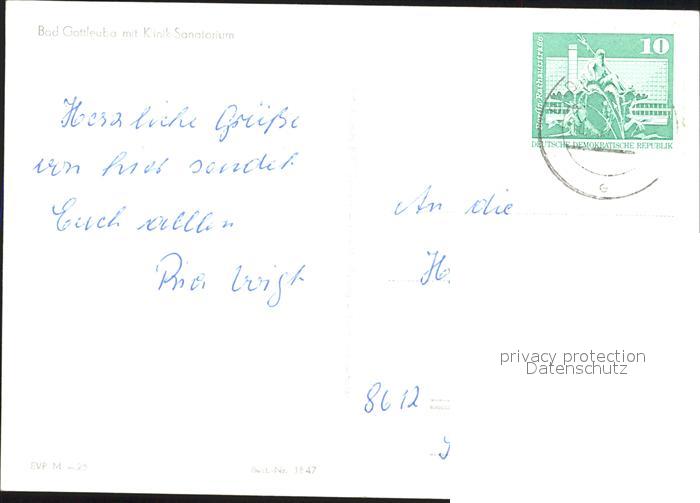 Bad Gottleuba mit Klinik Sanatorium
10
Berlin, Rathausstraße
DEUTSCHE DEMOKRATISCHE REPUBLIK
G
Herzliche Grüße
von hier sendet
Euch allen
Ria Voigt
An die
privacy protection
Datenschutz
8612
EVP M -.25
Best.-Nr. 1847